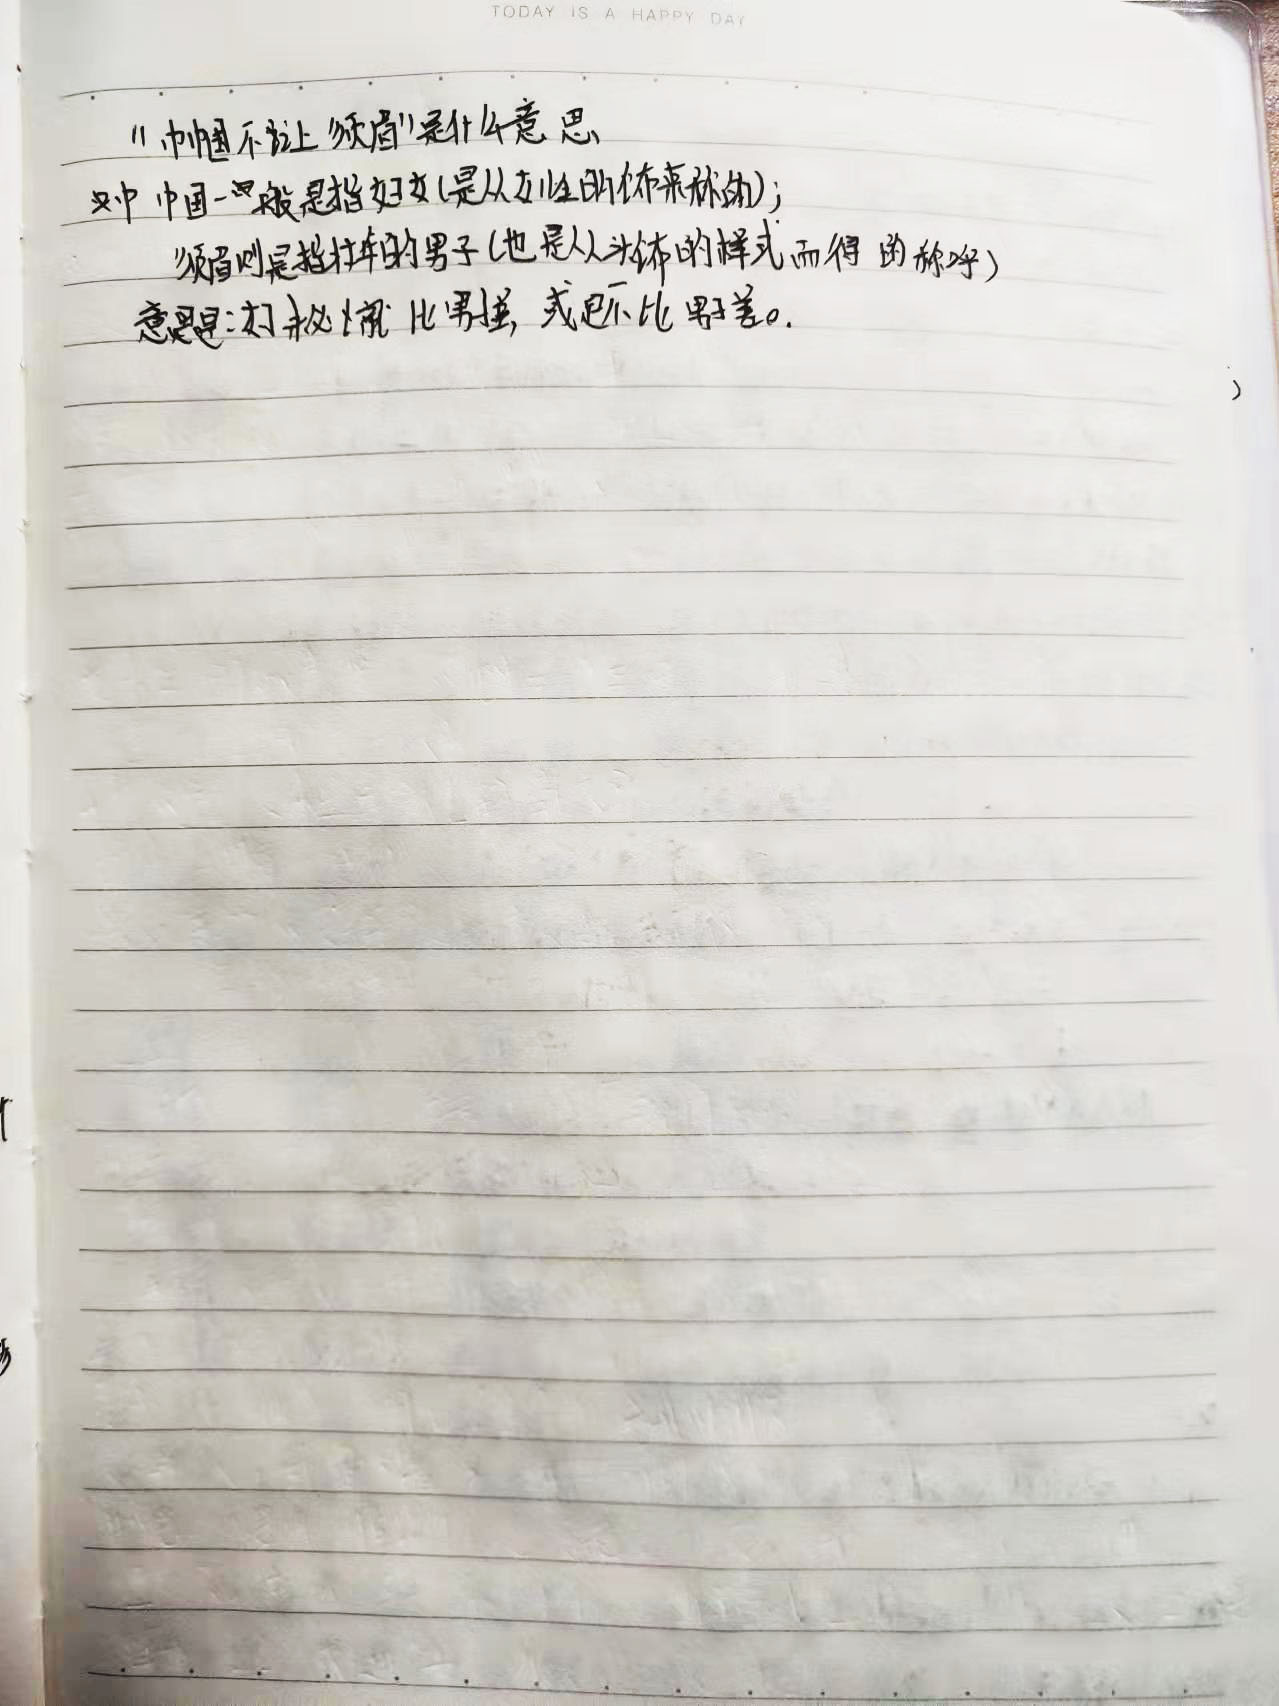 TODAY IS A HAPPY DAY
"巾帼不让须眉"是什么意思
巾国一般是指妇女(是从女性的饰来称的);
须眉则是指的男子(也是从头饰的样式而得的称呼)
意思是:比男强,或是不比男子差。